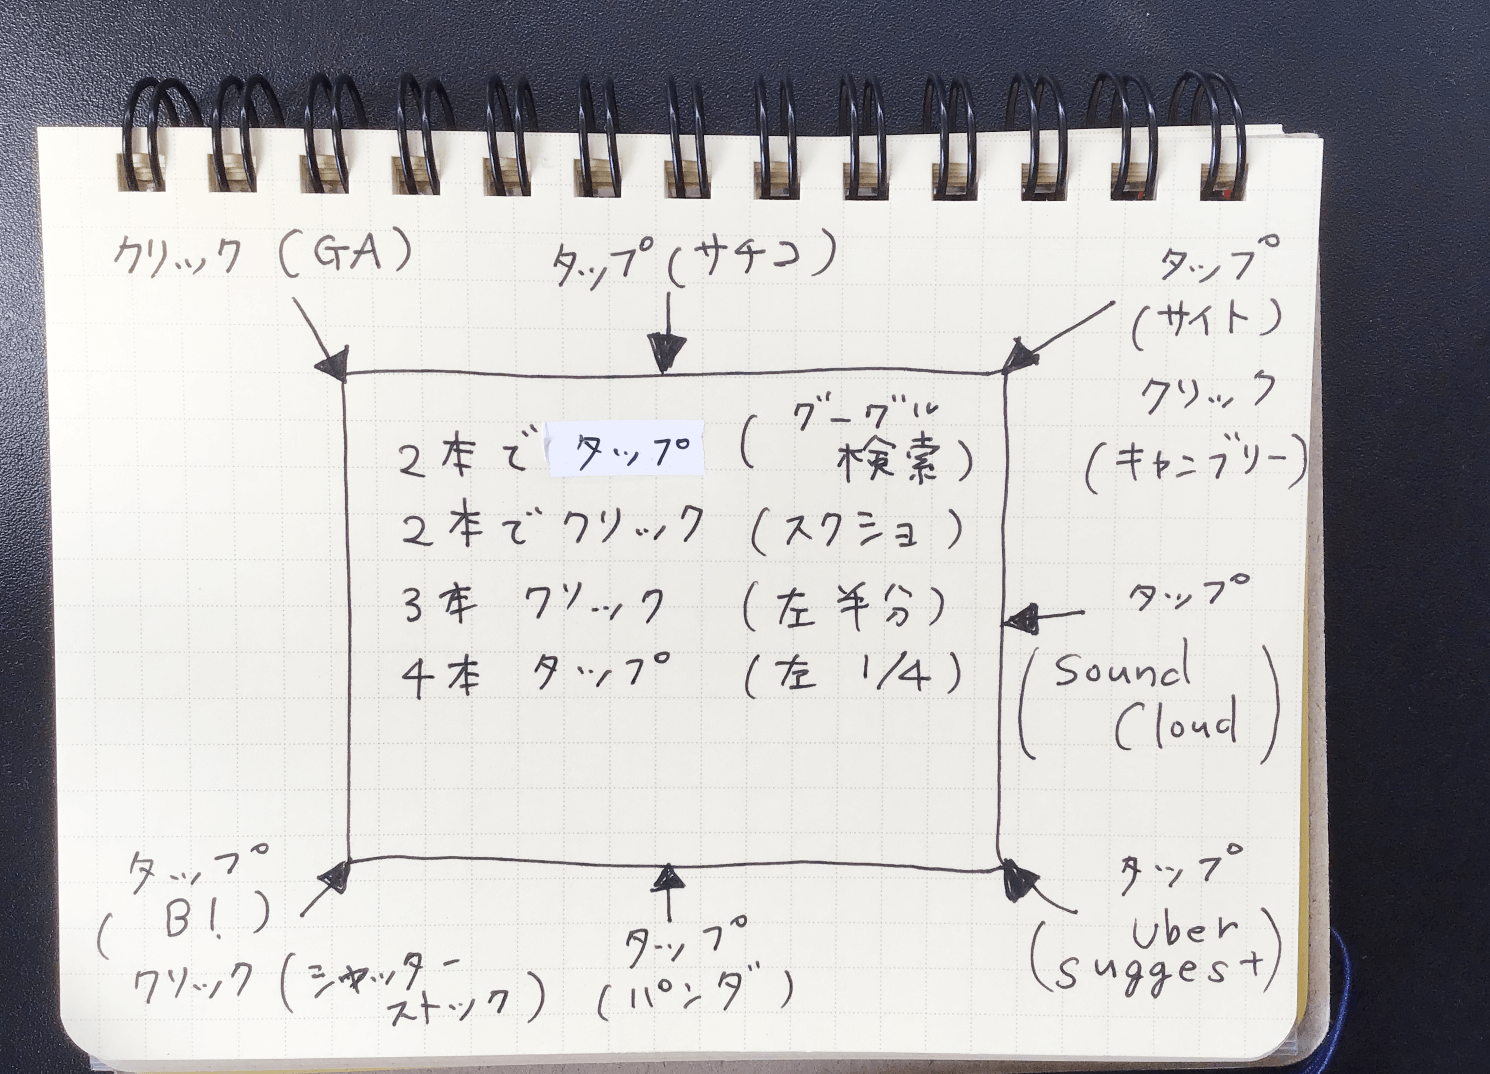 クリック (GA)
タップ (サチコ)
タップ
(サイト)
クリック
(キャンブリー)
2本で タップ (グーグル
検索)
2本でクリック (スクショ)
3本 クリック (左半分)
4本 タップ (左 1/4)
タップ
(Sound
Cloud)
タップ
(B!)
クリック (シャッター
ストック)
タップ
(パンダ)
タップ
(Uber
suggest)